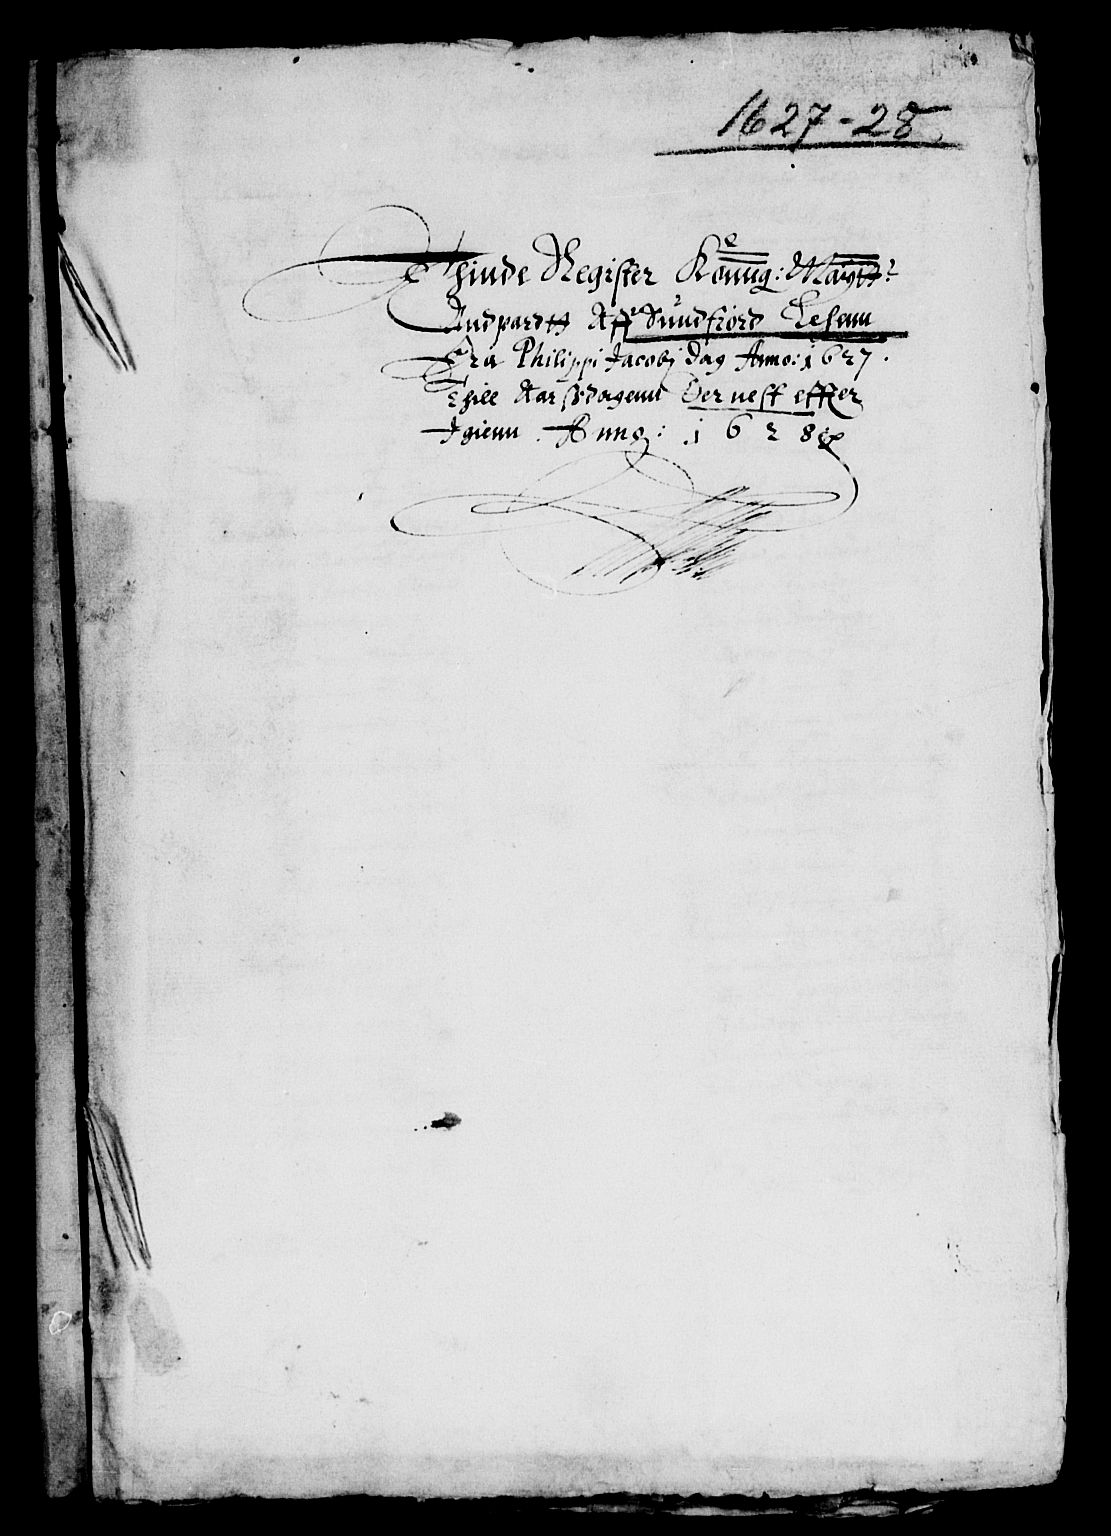 1627-28
Thiude Register Konng: Maÿtts
Andpardtt Aff Sundfiord Lehenn
Fra Philippi Jacobj dag Anno: 1627.
Thill Aarssdagenn Der nest effter
Igienn. Anno: 1628